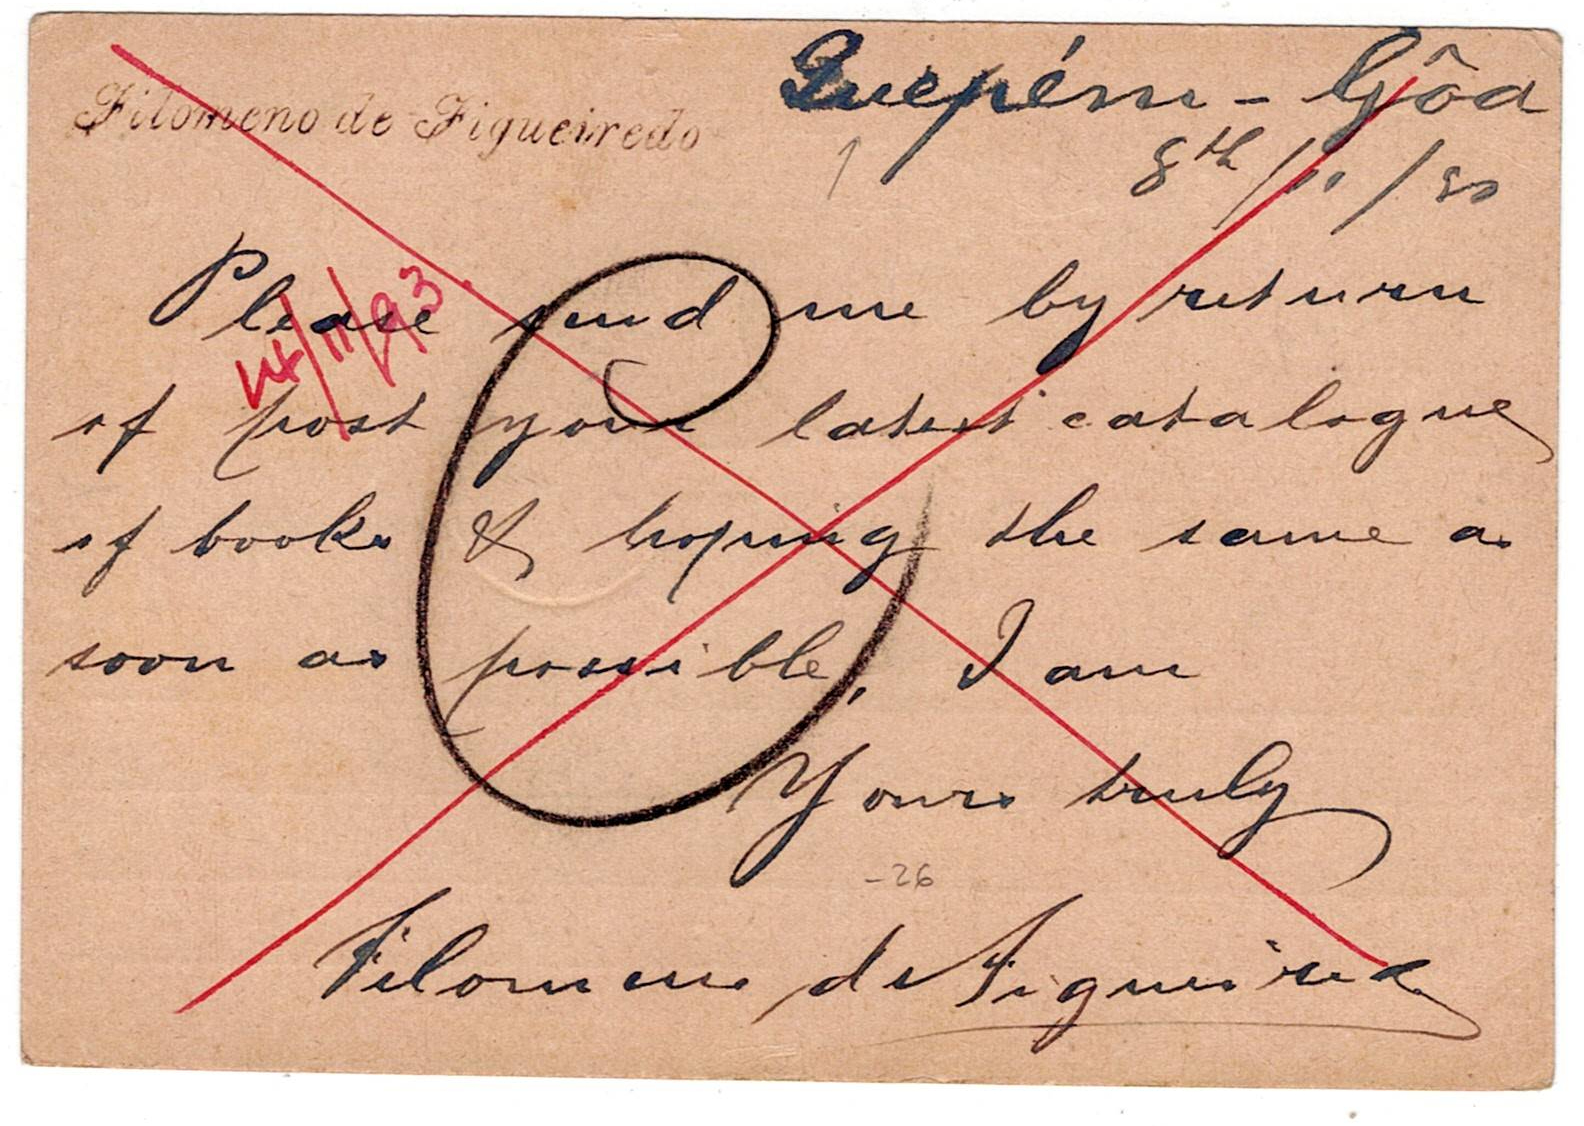 Filomeno de Figueiredo
Quepém - Gôa
8th / 11 /
Please send me by return
14/11/93.
of post your latest catalogue
of books & hoping the same as
soon as possible, I am
Yours truly
-26
Filomeno de Figueiredo